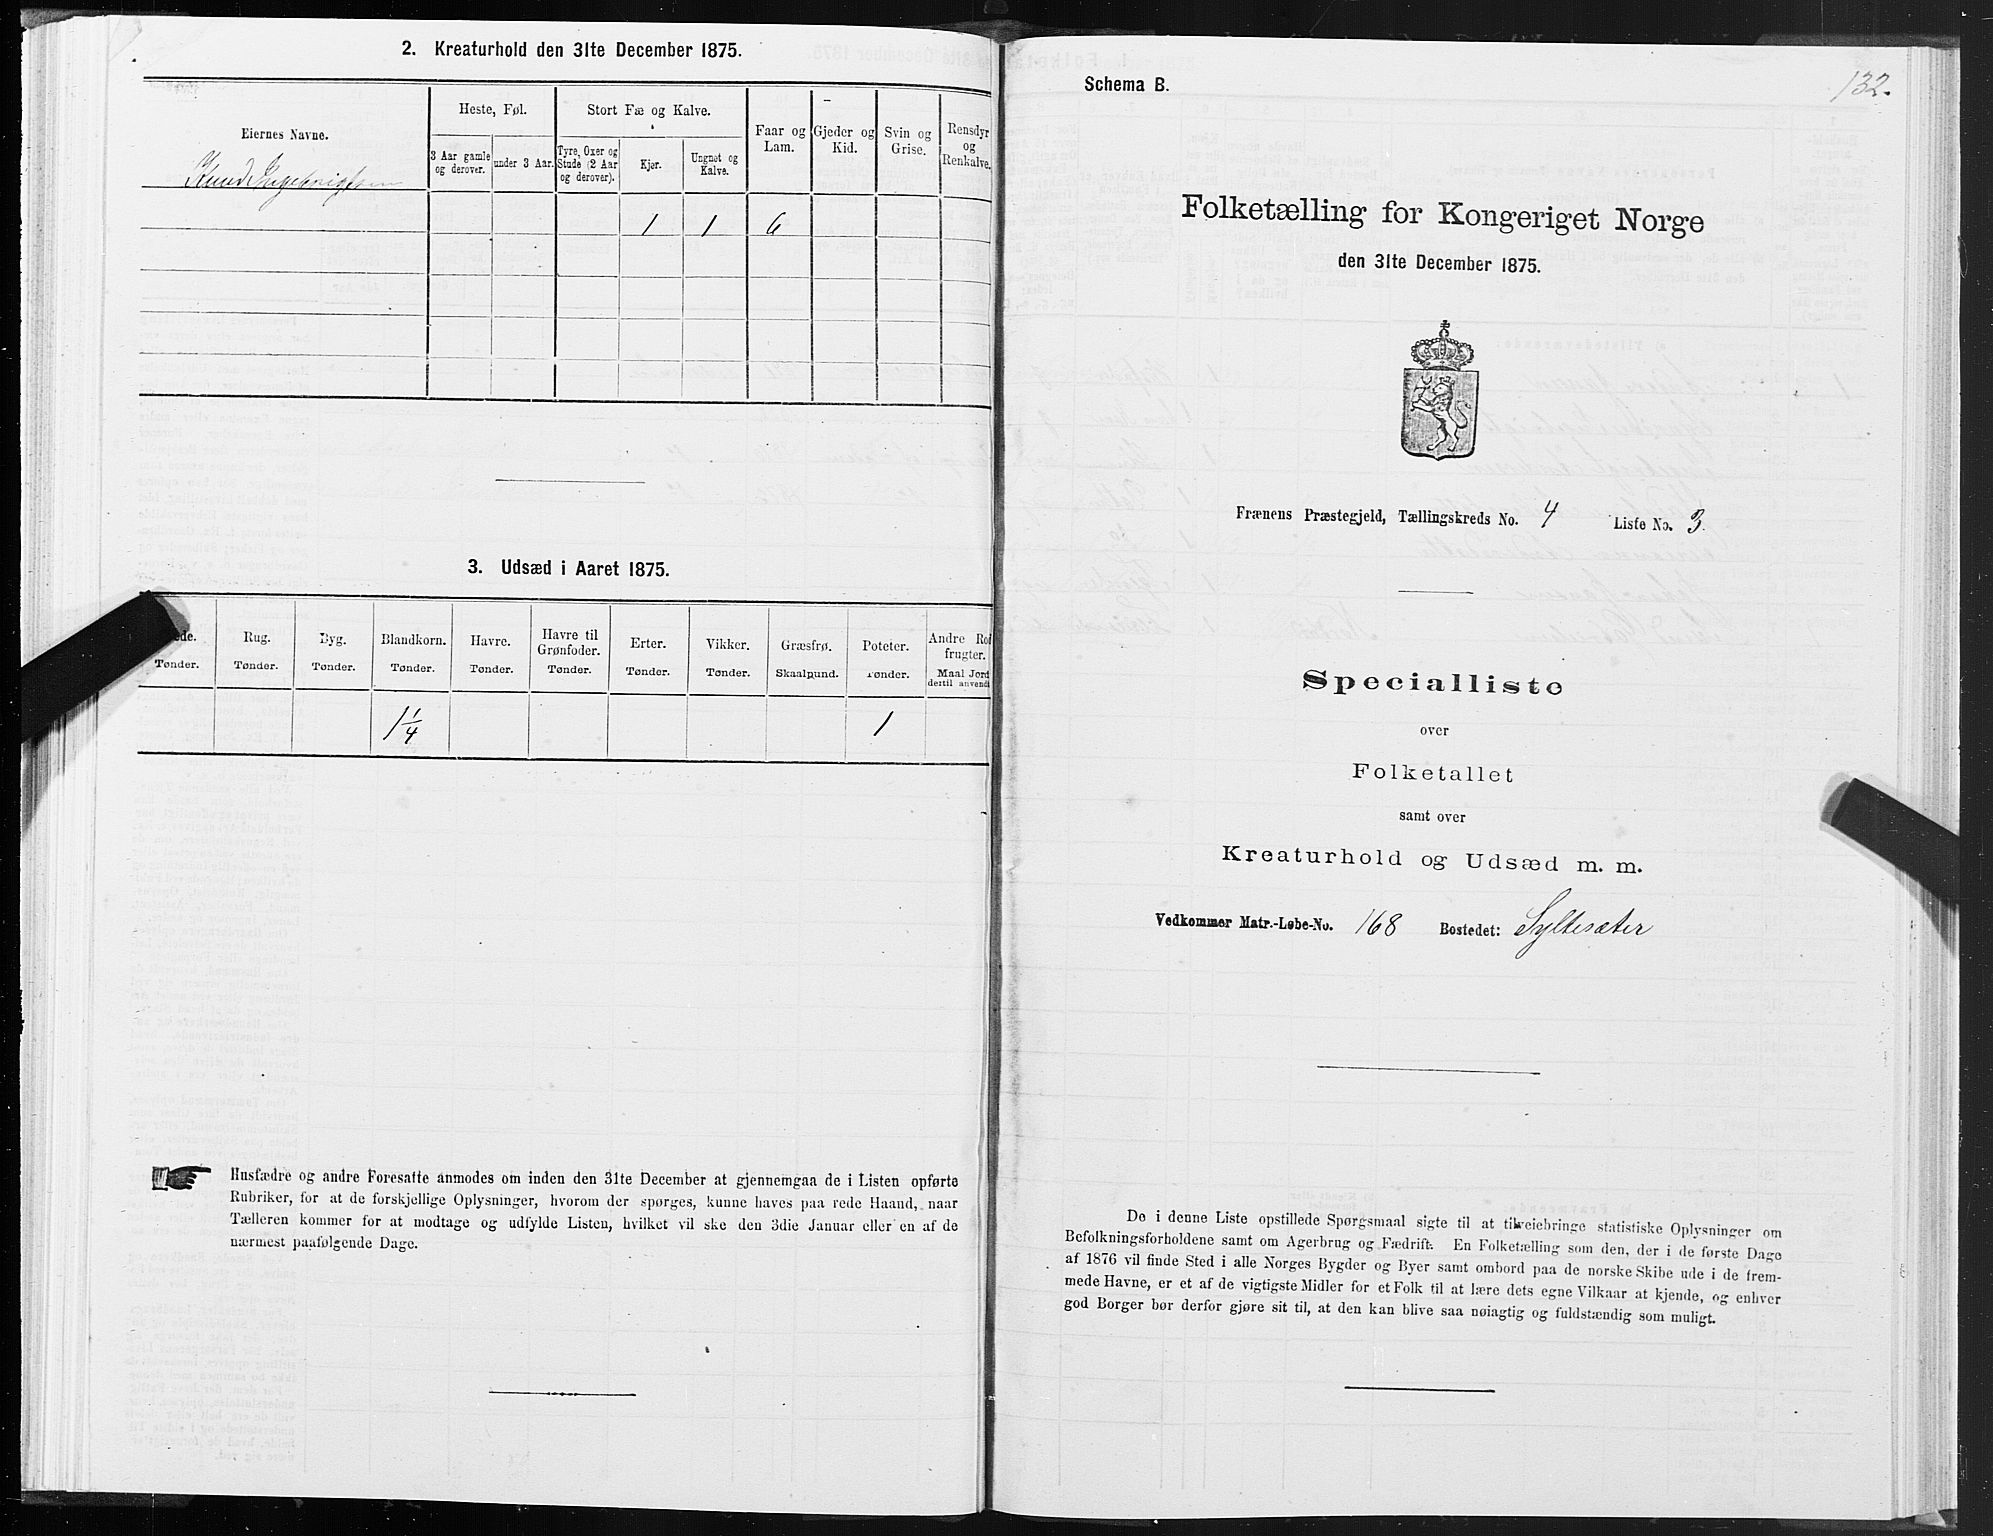 2. Kreaturhold den 31te December 1875.
Eiernes Navne.
Heste, Føl.
Stort Fæ og Kalve.
Faar og Lam.
Gjeder og Kid.
Svin og Grise.
Rensdyr og Renkalve.
3 Aar gamle og derover.
under 3 Aar.
Tyre, Oxer og Stude (2 Aar og derover).
Kjør.
Ungnøt og Kalve.
Knud Ingebrigtsen
1 1 6
3. Udsæd i Aaret 1875.
Rug. Byg. Blandkorn. Havre. Havre til Grønfoder. Erter. Vikker. Græsfrø. Poteter. Andre Rodfrugter.
Tønder. Tønder. Tønder. Tønder. Tønder. Tønder. Tønder. Tønder. Skaalpund. Tønder. Maal Jord dertil anvendt
1 1/4 1
Husfædre og andre Foresatte anmodes om inden den 31te December at gjennemgaa de i Listen opførte
Rubriker, for at de forskjellige Oplysninger, hvorom der spørges, kunne haves paa rede Haand, naar
Tælleren kommer for at modtage og udfylde Listen, hvilket vil ske den 3die Januar eller en af de
nærmest paafølgende Dage.
Schema B.
132.
Folketælling for Kongeriget Norge
den 31te December 1875.
Frænens Præstegjeld, Tællingskreds No. 4 Liste No. 3.
Specialliste
over
Folketallet
samt over
Kreaturhold og Udsæd m. m.
Vedkommer Matr.-Løbe-No. 168 Bostedet: Syltesæter
De i denne Liste opstillede Spørgsmaal sigte til at tilveiebringe statistiske Oplysninger om
Befolkningsforholdene samt om Agerbrug og Fædrift. En Folketælling som den, der i de første Dage
af 1876 vil finde Sted i alle Norges Bygder og Byer samt ombord paa de norske Skibe ude i de frem-
mede Havne, er et af de vigtigste Midler for et Folk til at lære dets egne Vilkaar at kjende, og enhver
god Borger bør derfor gjøre sit til, at den kan blive saa nøiagtig og fuldstændig som muligt.